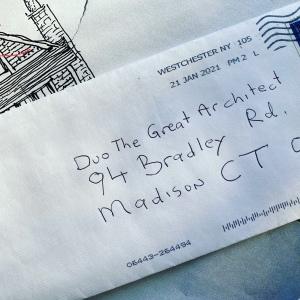 WESTCHESTER NY 105
21 JAN 2021 PM 2 L
Duo The Great Architect
94 Bradley Rd.
Madison CT
06443-264494